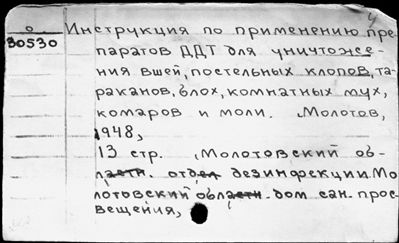 о
30530
Инструкция по применению пре-
паратов ДДТ для уничтоже-
ния вшей, постельных клопов, та-
раканов, блох, комнатных мух,
комаров и моли. Молотов,
1948,
13 стр. Молотовский об-
ластн. отдел дезинфекции. Мо
лотовский областн. дом сан. прос-
вещения,